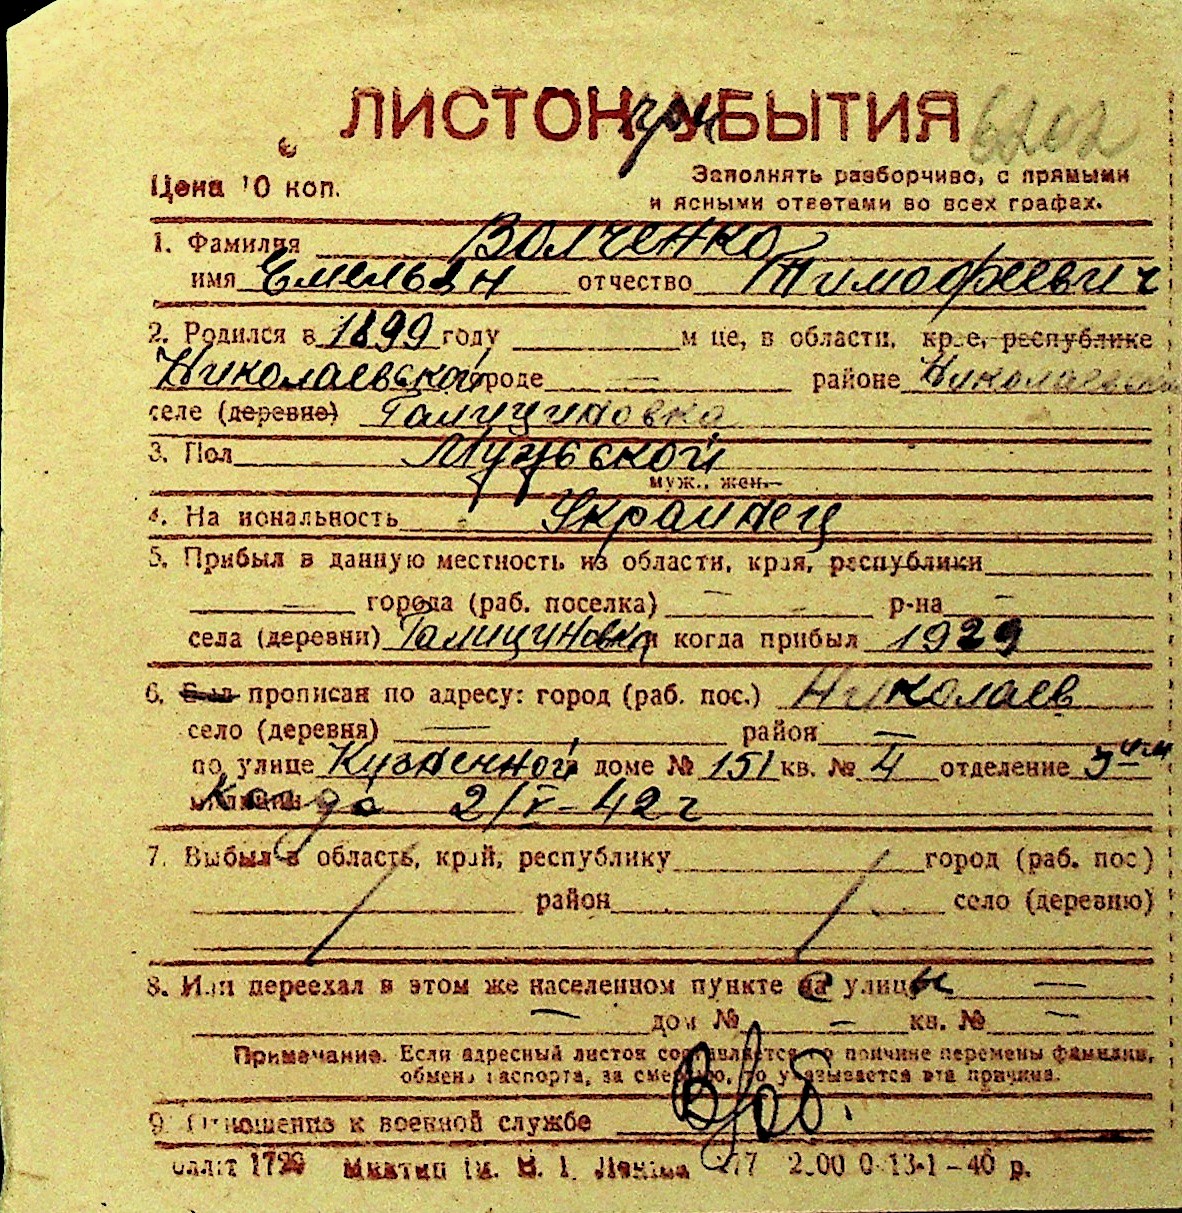 ЛИСТОК УБЫТИЯ 6202
при
Цена 10 коп.
Заполнять разборчиво, с прямыми
и ясными ответами во всех графах.
1. Фамилия Волченко
имя Емельян отчество Тимофеевич
2. Родился в 1899 году м це, в области, крае, республике
Николаевской городе — районе Николаевском
селе (деревне) Галициновка
3. Пол Мужской
муж., жен.
4. Национальность Украинец
5. Прибыл в данную местность из области, края, республики
— города (раб. поселка) — р-на —
села (деревни) Галициновка и когда прибыл 1929
6. Был прописан по адресу: город (раб. пос.) Николаев
село (деревня) — район —
по улице Кузнечной доме № 151 кв. № 4 отделение 3
милиции Когда 2/V-42 г
7. Выбыл в область, край, республику город (раб. пос)
район село (деревню)
8. Или переехал в этом же населенном пункте са улицы —
— дом № — кв. № —
Примечание. Если адресный листок составляется по причине перемены фамилии,
обмена паспорта, за смертью, то указывается эта причина.
9. Отношение к военной службе В/об.
1729 им. В. І. Леніна 2.00 0 13-1-40 р.